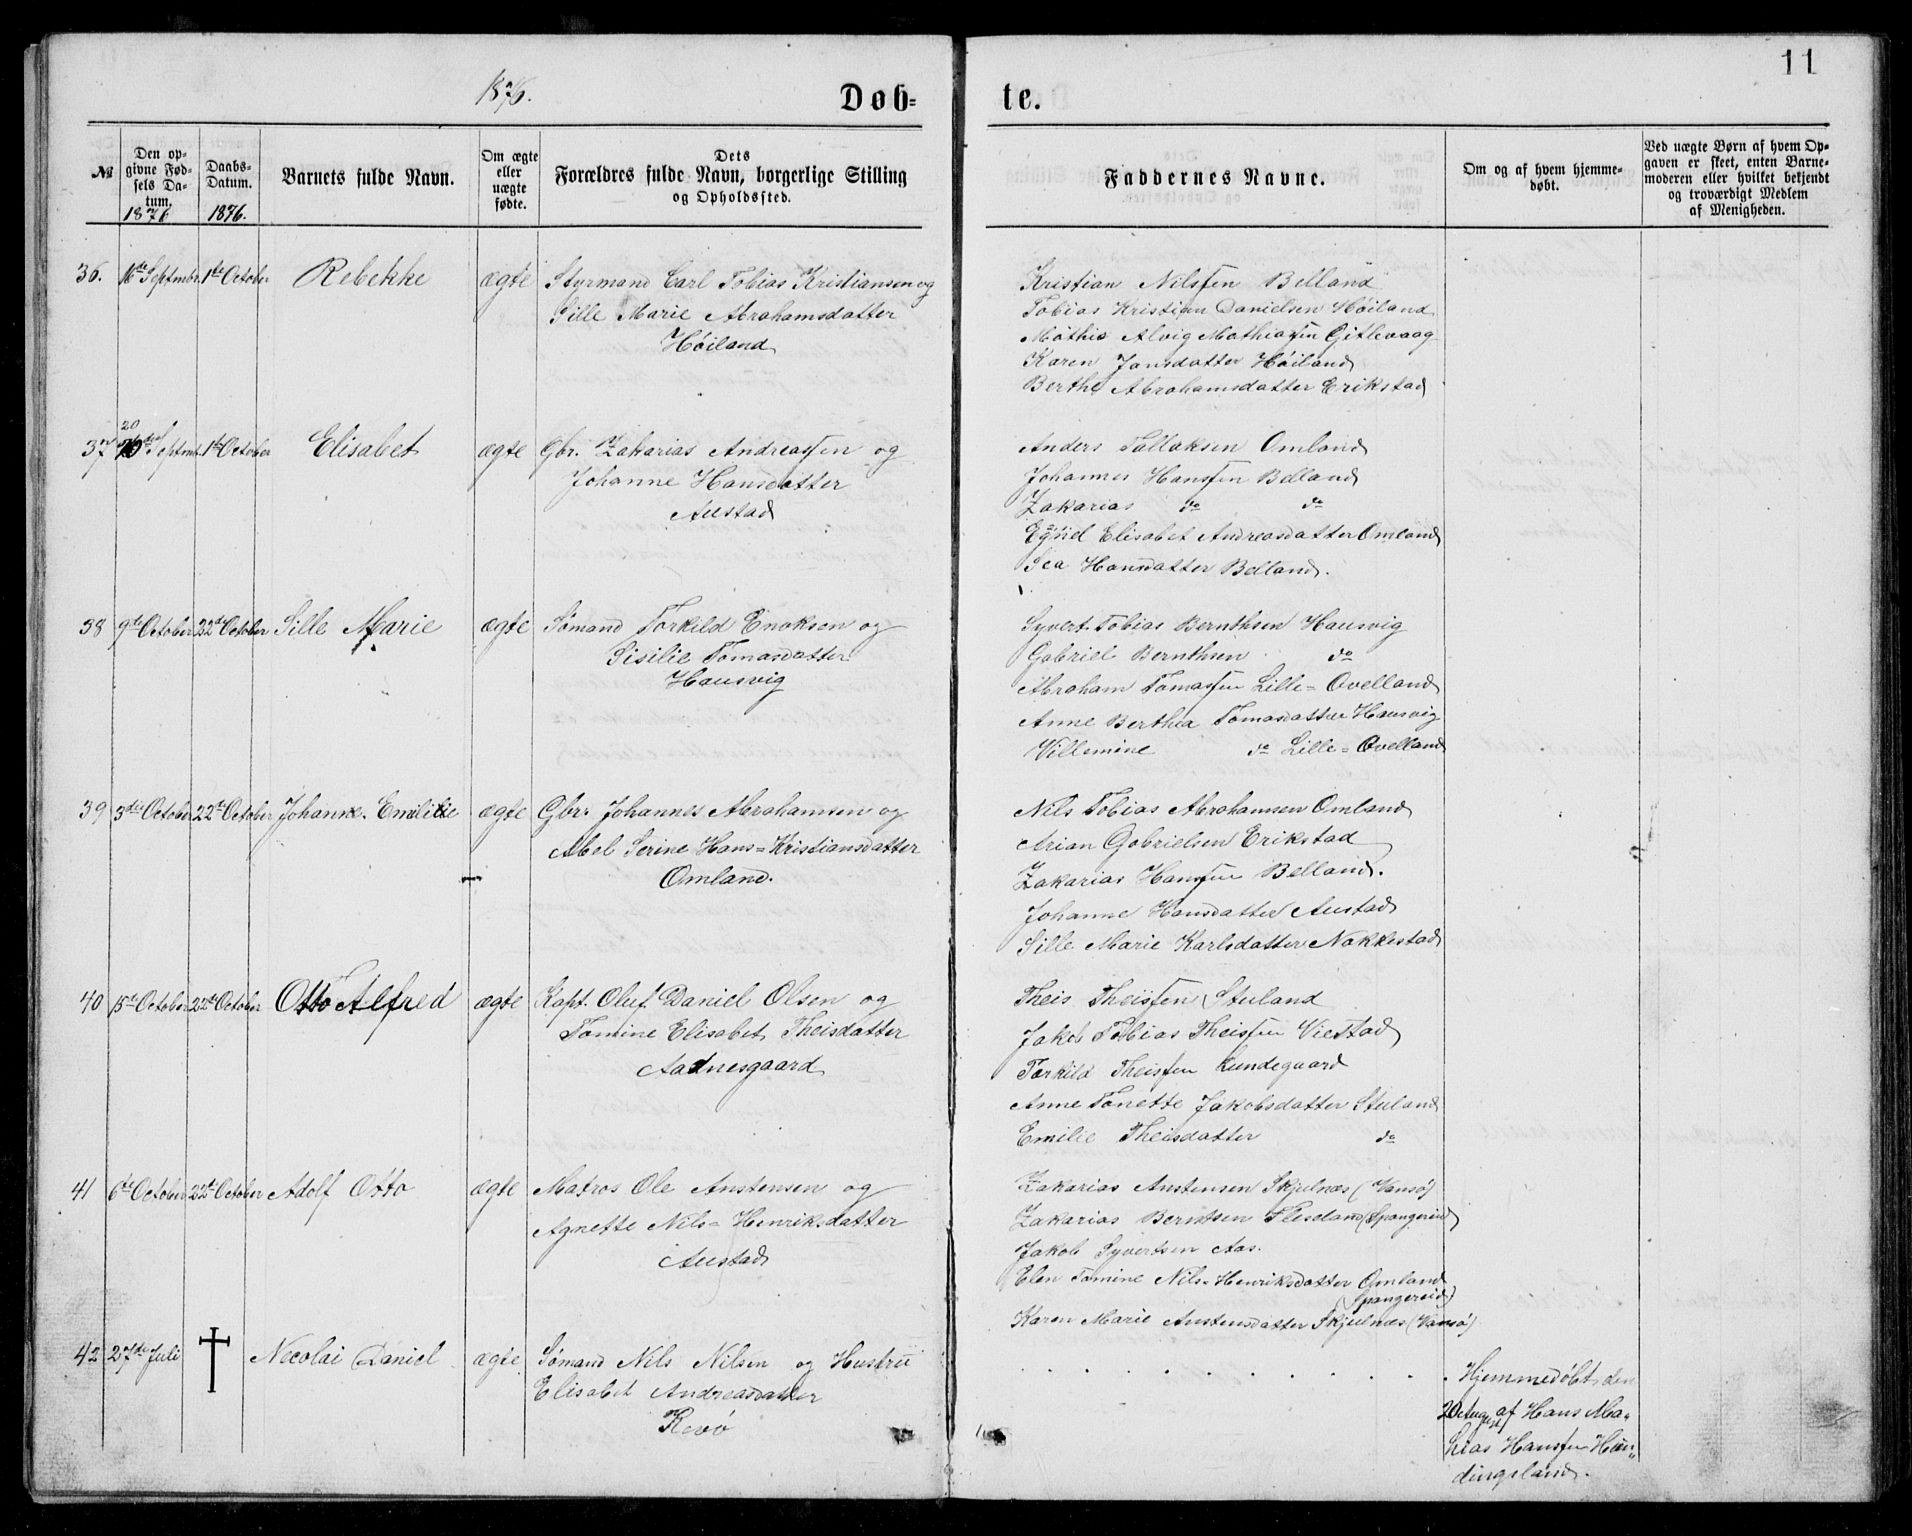 11
1876.
Døb-
te.
№
Den op-
givne Fød-
sels Da-
tum.
1876
Daabs-
Datum.
1876.
Barnets fulde Navn.
Om ægte
eller
uægte
fødte.
Dets
Forældres fulde Navn, borgerlige Stilling
og Opholdssted.
Faddernes Navne.
Om og af hvem hjemme-
døbt.
Ved uægte Børn af hvem Op-
gaven er skeet, enten Barne-
moderen eller hvilket bekjendt
og troværdigt Medlem
af Menigheden.
36. 16de Septmbr. 1ste October Rebekke ægte Styrmand Carl Tobias Kristiansen og
Sille Marie Abrahamsdatter
Høiland
Kristian Nilssen Belland
Tobias Kristian Danielsen Høiland
Mathis Alvig Mathiassen Gitlevaag
Karen Jansdatter Høiland
Berthe Abrahamsdatter Erikstad
20
37 Septmb. 1ste October Elisabet ægte Gbr. Zakarias Andreassen og
Johanne Hansdatter
Austad
Anders Tallaksen Omland
Johannes Hanssen Belland
Zakarias do do
Elisabet Andreasdatter Omland
Sea Hansdatter Belland.
38 9de October 22de October Sille Marie ægte Sømand Torkild Enoksen og
Sisilie Tomasdatter
Hausvig
Syvert Tobias Bernthsen Hausvig
Gabriel Bernthsen do
Abraham Tomassen Lille-Øvelland
Anne Berthea Tomasdatter Hausvig
Villemine do Lille-Øvelland
39 3die October 22de October Johanne Emilie ægte Gbr. Johannes Abrahamsen og
Abel Serine Hans-Kristiansdatter
Omland.
Nils Tobias Abrahamsen Omland
Arian Gabrielsen Erikstad
Zakarias Hanssen Belland.
Johanne Hansdatter Austad
Sille Marie Karlsdatter Nakkestad
40 15de October 22de October Otto Alfred ægte Kapt. Oluf Daniel Olsen og
Tomine Elisabet Theisdatter
Aadnesgaard
Theis Theissen Stuland
Jakob Tobias Theissen Viestad
Torkild Theissen Lundegaard
Anne Tonette Jakobsdatter Stuland
Emilie Theisdatter do
41 6te October 22de October Adolf Otto ægte Matros Ole Anstensen og
Agnette Nils-Henriksdatter
Austad
Zakarias Anstensen Skjulnæs (Vansø)
Zakarias Berntsen (Spangereid)
Jakob Syvertsen Aas.
Elen Tomine Nils-Henriksdatter Omland
(Spangereid)
Karen Marie Anstensdatter Skjulnæs (Vansø)
42 27de Juli † Nicolai Daniel ægte Sømand Nils Nilsen og Hustru
Elisabet Andreasdatter
Revø
Hjemmedøbt den
2 August af Hans Ma-
thias Hanssen Hun-
dingsland.